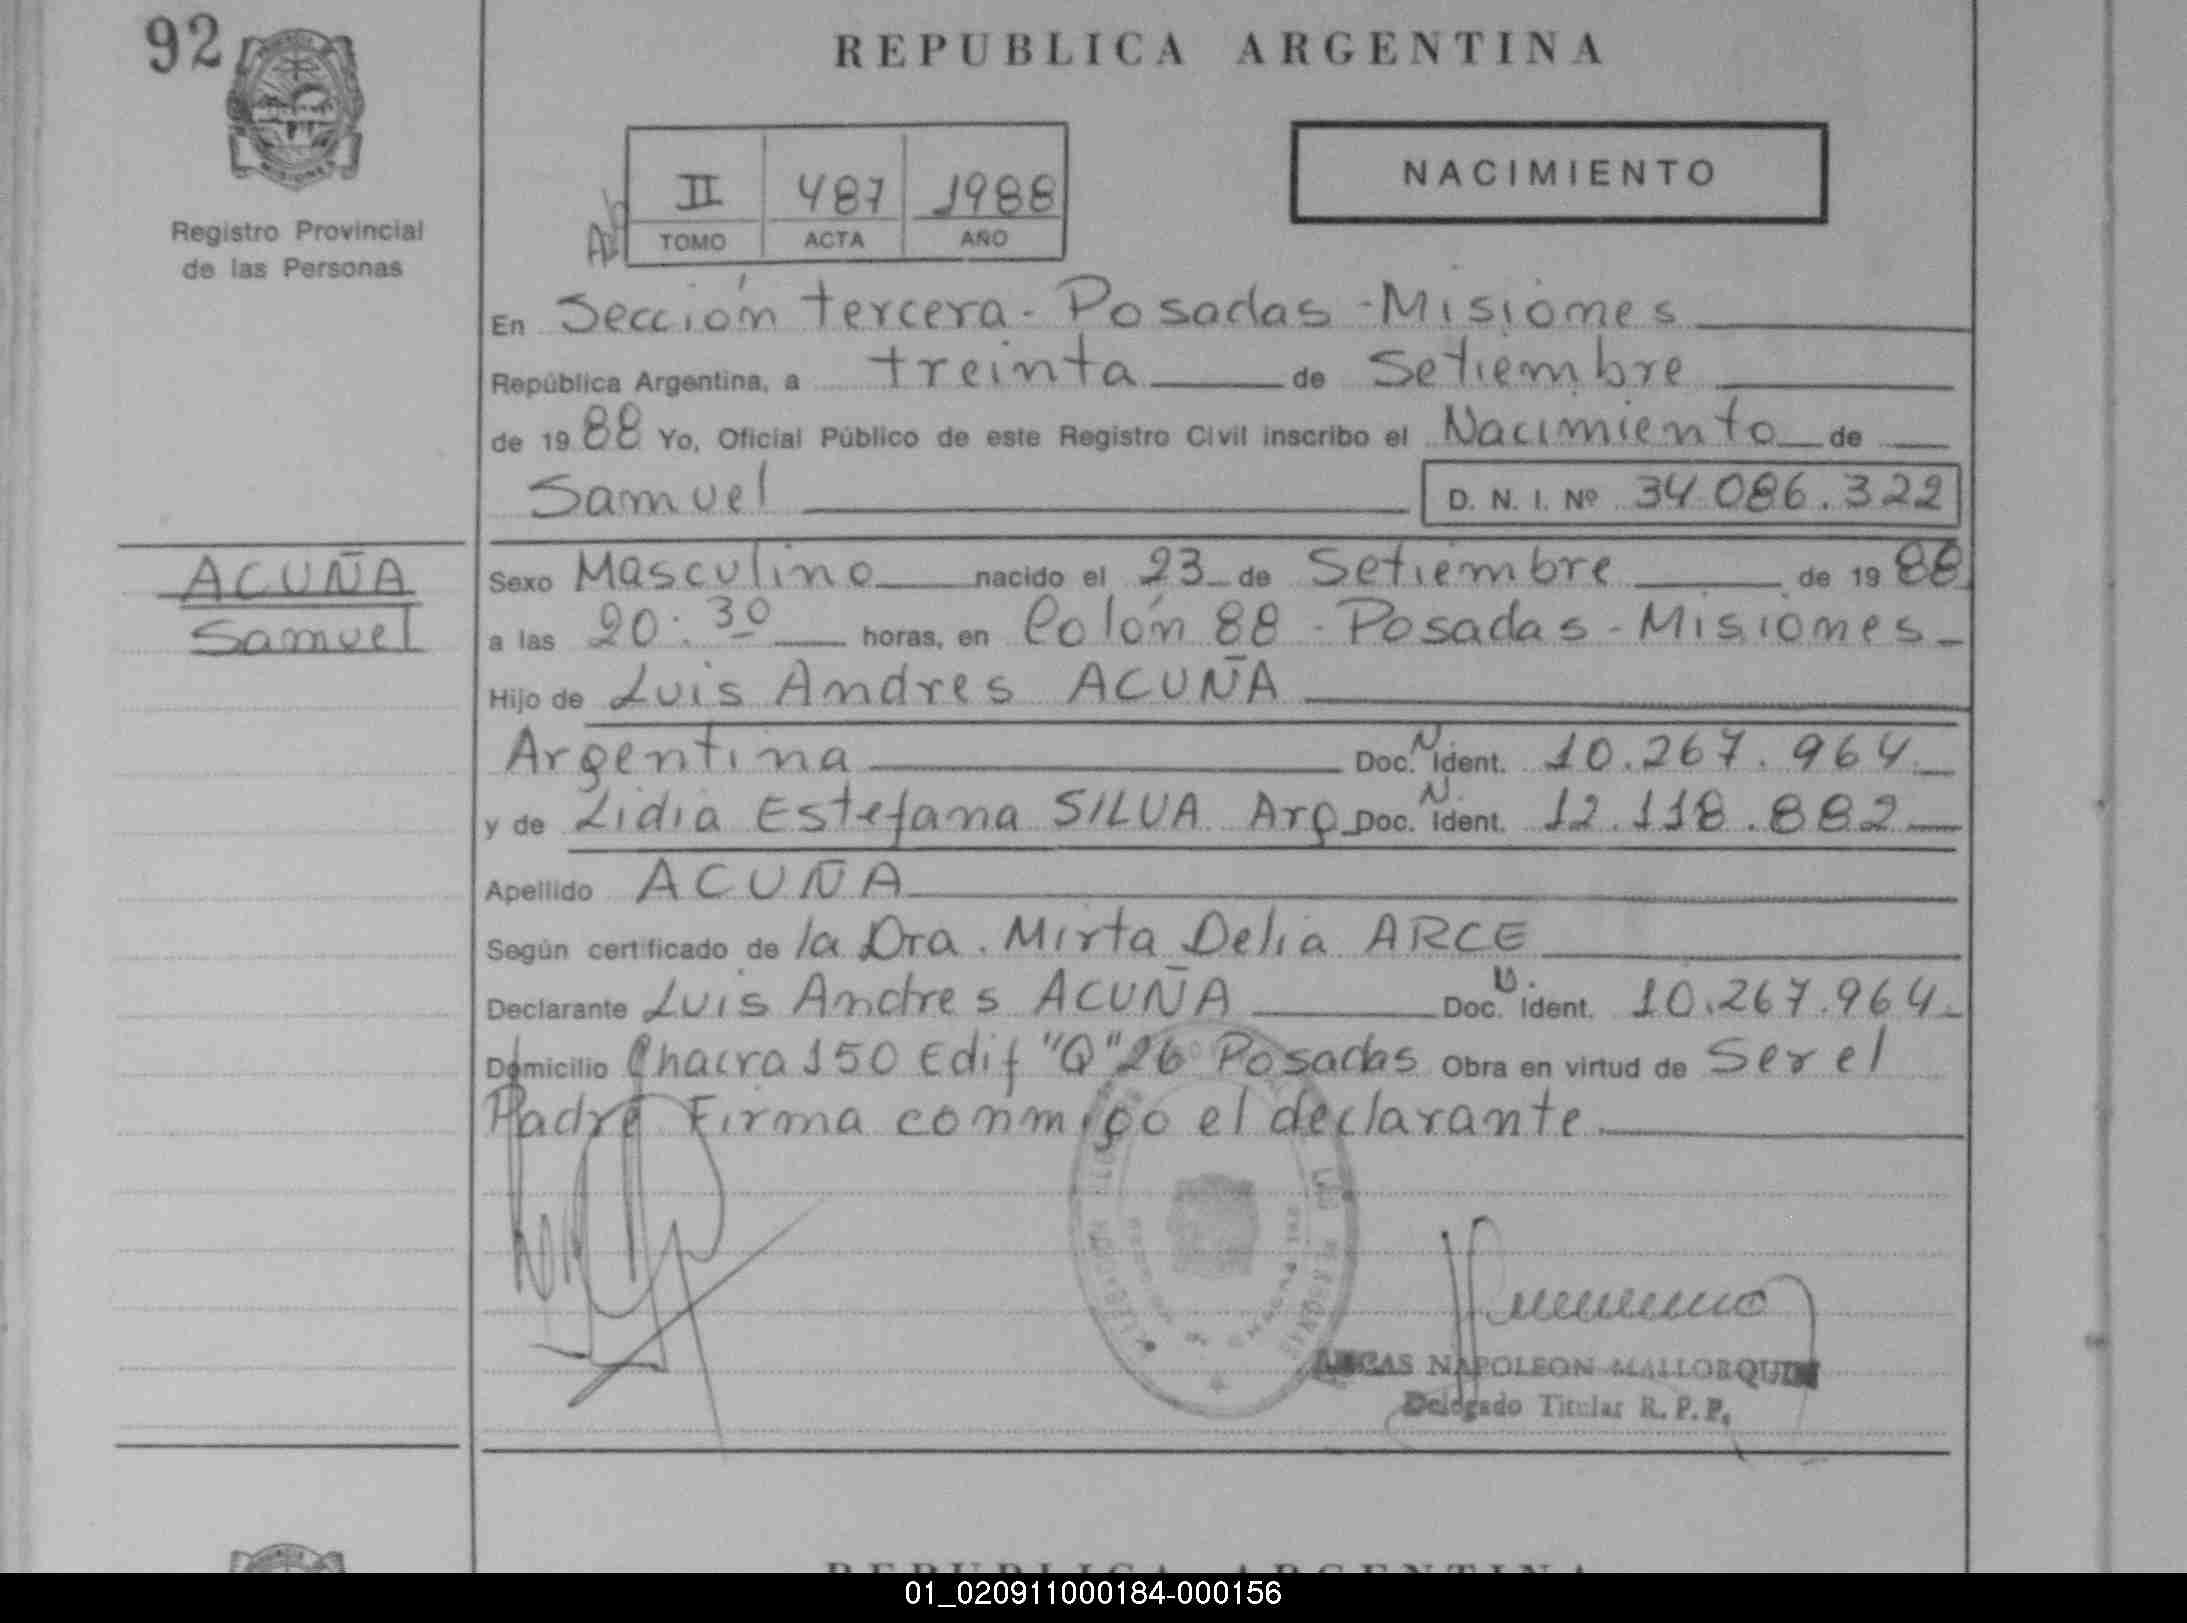 92
REPUBLICA ARGENTINA
NACIMIENTO
II 487 1988
TOMO ACTA AÑO
Registro Provincial
de las Personas
En Sección tercera - Posadas - Misiones
República Argentina, a treinta de Setiembre
de 1988 Yo, Oficial Público de este Registro Civil inscribo el Nacimiento de
Samuel D. N. I. Nº 34.086.322
ACUÑA
Samuel
Sexo Masculino nacido el 23 de Setiembre de 1988
a las 20:30 horas, en Colón 88 - Posadas - Misiones
Hijo de Luis Andres ACUÑA
Argentina Doc. N. Ident. 10.267.964
y de Lidia Estefana SILVA Arg Doc. N. Ident. 12.118.882
Apellido ACUÑA
Según certificado de la Dra. Mirta Delia ARCE
Declarante Luis Andres ACUÑA Doc. N. Ident. 10.267.964
Domicilio Chacra 150 Edif "Q" 26 Posadas Obra en virtud de Ser el
Padre Firma conmigo el declarante
NAPOLEON MALLORQUIN
Delegado Titular R. P. P.
REPUBLICA ARGENTINA
01_020911000184-000156